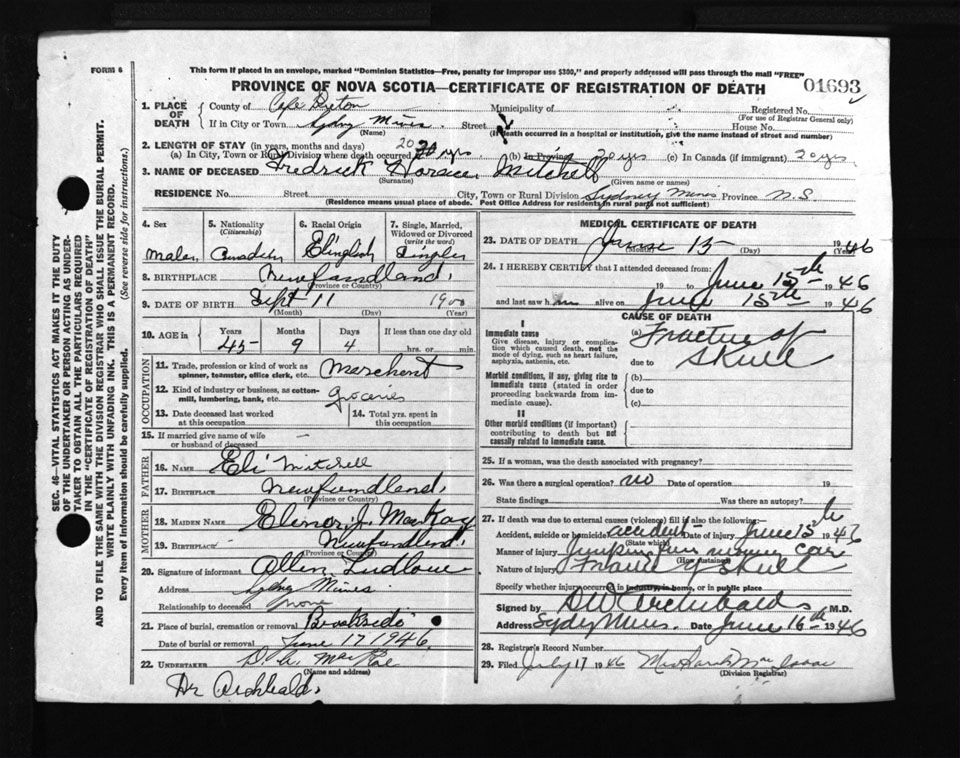 FORM 6
This form if placed in an envelope, marked "Dominion Statistics—Free, penalty for improper use $300," and properly addressed will pass through the mail "FREE"
PROVINCE OF NOVA SCOTIA—CERTIFICATE OF REGISTRATION OF DEATH
01693
1. PLACE OF DEATH
County of Cape Breton Municipality of Registered No.
(For use of Registrar General only)
If in City or Town Sydney Mines Street House No.
(Name) (If death occurred in a hospital or institution, give the name instead of street and number)
2. LENGTH OF STAY (in years, months and days)
(a) In City, Town or Rural Division where death occurred 20 yrs. (b) In Province 20 yrs (c) In Canada (if immigrant) 20 yrs.
3. NAME OF DECEASED Fredrick Horace Mitchell
(Surname) (Given name or names)
RESIDENCE No. Street City, Town or Rural Division Sydney Mines Province N.S.
(Residence means usual place of abode. Post Office Address for residents in rural parts not sufficient)
4. Sex
Male
5. Nationality
(Citizenship)
Canadian
6. Racial Origin
English
7. Single, Married, Widowed or Divorced
(write the word)
Single
8. BIRTHPLACE Newfoundland
(Province or Country)
9. DATE OF BIRTH Sept 11 1900
(Month) (Day) (Year)
10. AGE in Years Months Days If less than one day old
45 9 4 hrs. or min.
OCCUPATION
11. Trade, profession or kind of work as spinner, teamster, office clerk, etc. Merchant
12. Kind of industry or business, as cotton-mill, lumbering, bank, etc. groceries
13. Date deceased last worked at this occupation
14. Total yrs. spent in this occupation
15. If married give name of wife or husband of deceased —
FATHER
16. NAME Eli Mitchell
17. BIRTHPLACE Newfoundland
(Province or Country)
MOTHER
18. MAIDEN NAME Elinor J. MacKay
19. BIRTHPLACE Newfoundland
(Province or Country)
20. Signature of informant Allen Ludlow
Address Sydney Mines
Relationship to deceased none
21. Place of burial, cremation or removal Brookside
Date of burial or removal June 17 1946
22. UNDERTAKER D. A. MacRae
(Name and address)
Dr Archibald
MEDICAL CERTIFICATE OF DEATH
23. DATE OF DEATH June 15 1946
(Month) (Day)
24. I HEREBY CERTIFY that I attended deceased from:
19 to June 15th 1946
and last saw him alive on June 15th 1946
CAUSE OF DEATH
I
Immediate cause
Give disease, injury or complication which caused death, not the mode of dying, such as heart failure, asphyxia, asthenia, etc.
(a) Fracture of Skull
due to
Morbid conditions, if any, giving rise to immediate cause (stated in order proceeding backwards from immediate cause).
(b)
due to
(c)
II
Other morbid conditions (if important) contributing to death but not causally related to immediate cause.
25. If a woman, was the death associated with pregnancy?
26. Was there a surgical operation? no Date of operation 19
State findings Was there an autopsy?
27. If death was due to external causes (violence) fill in also the following:
Accident, suicide or homicide accident Date of injury June 15th 1946
(State which)
Manner of injury Jumping from moving car
(How sustained)
Nature of injury Frac of Skull
Specify whether injury occurred in industry, in home, or in public place
Signed by DW Archibald M.D.
Address Sydney Mines. Date June 16th 1946
28. Registrar's Record Number
29. Filed July 17 1946 Mrs Sarah Mac Isaac
(Division Registrar)
SEC. 46—VITAL STATISTICS ACT MAKES IT THE DUTY OF THE UNDERTAKER OR PERSON ACTING AS UNDERTAKER TO OBTAIN ALL THE PARTICULARS REQUIRED IN THE "CERTIFICATE OF REGISTRATION OF DEATH" AND TO FILE THE SAME WITH THE DIVISION REGISTRAR WHO SHALL ISSUE THE BURIAL PERMIT.
WRITE PLAINLY WITH UNFADING INK. THIS IS A PERMANENT RECORD.
Every item of information should be carefully supplied. (See reverse side for instructions.)